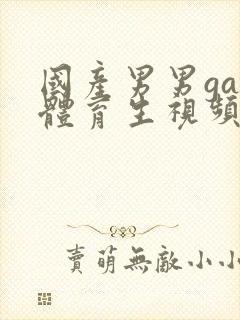 國產男男ga
體育生視頻
賣萌無敵小小